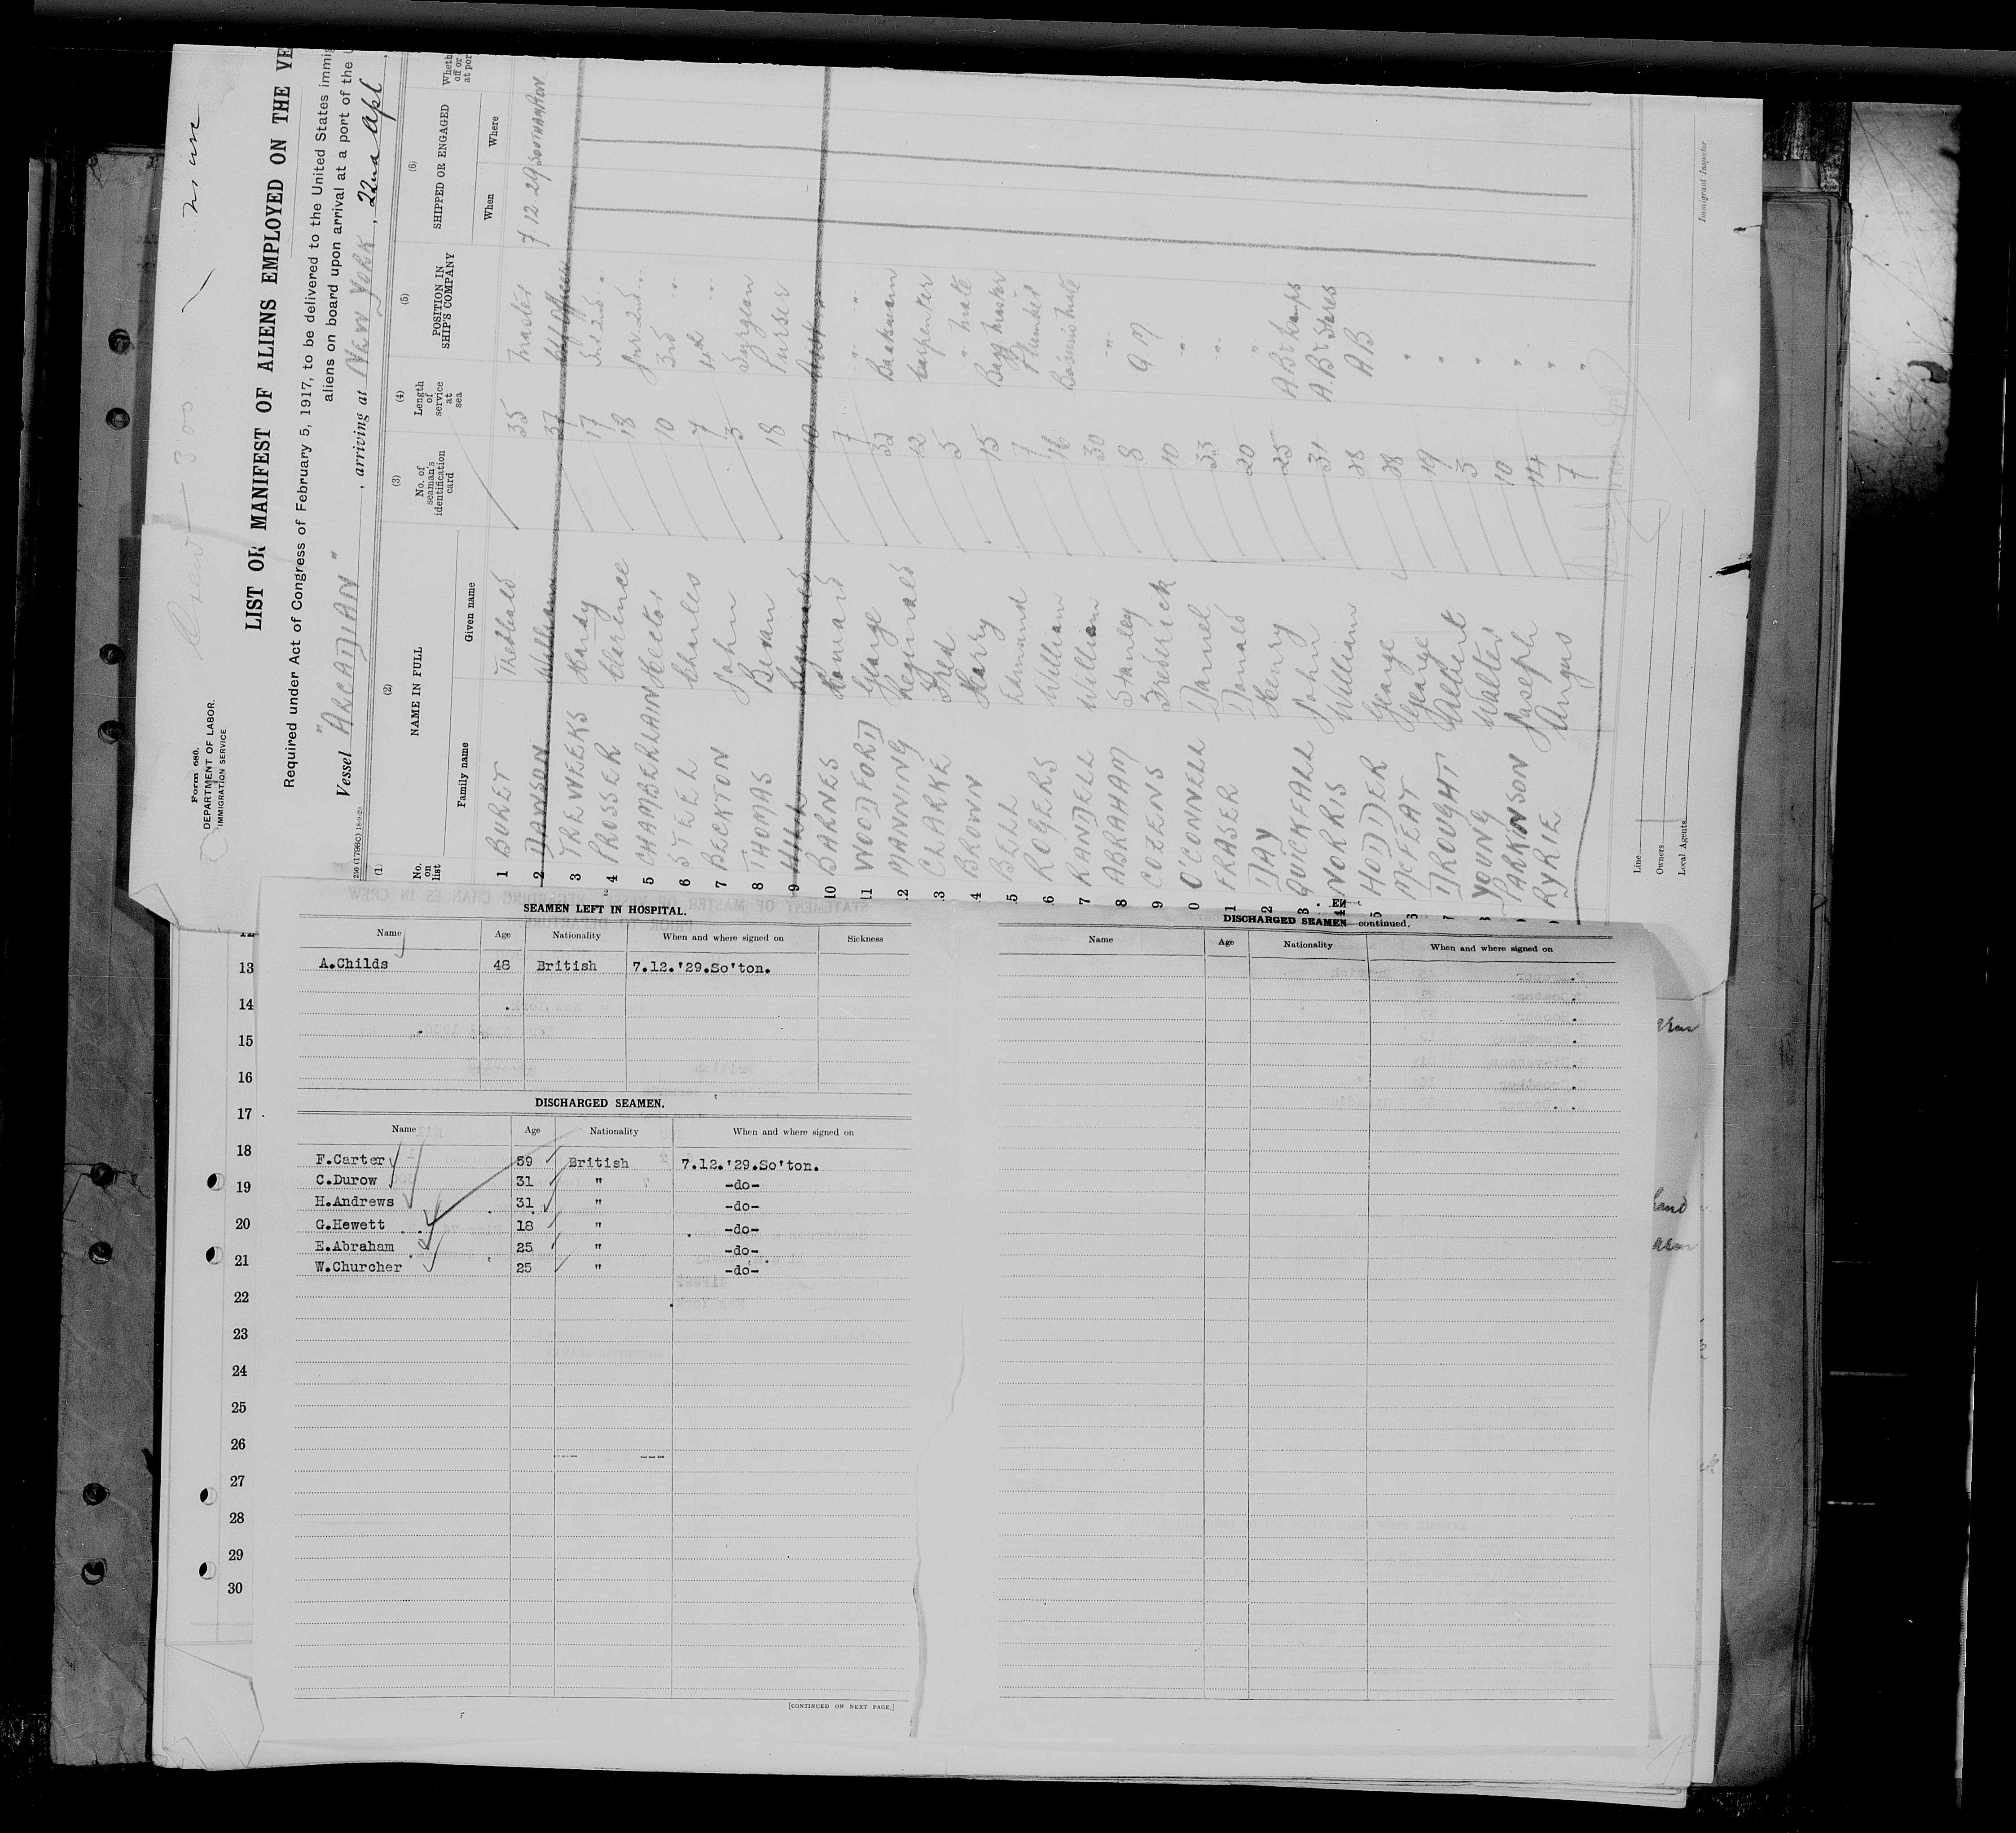 Form 680.
DEPARTMENT OF LABOR.
IMMIGRATION SERVICE
LIST OR MANIFEST OF ALIENS EMPLOYED ON THE VE
Required under Act of Congress of February 5, 1917, to be delivered to the United States immig
aliens on board upon arrival at a port of the U
Vessel "ARCADIAN", arriving at NEW YORK, 22nd Apl
(1) (2) (3) (4) (5) (6)
No. on list NAME IN FULL No. of seaman's identification card Length of service at sea POSITION IN SHIP'S COMPANY SHIPPED OR ENGAGED
Family name Given name When Where
1 BURET Theobald 35 Master 7 12 29 SOUTHAMPTON
2 DAWSON William 37 Chf Officer
3 TREWEEKS Hardy 17 Snr 2nd "
4 PROSSER Clarence 18 Jnr 2nd "
5 CHAMBERLAIN Hector 10 3rd "
6 STEEL Charles 7 4th "
7 BECKTON John 3 Surgeon
8 THOMAS Bevan 18 Purser
9 Reginald 10
10 BARNES Leonard 7 "
11 WOODFORD George 32 Boatswain
12 MANNING Reginald 12 Carpenter
3 CLARKE Fred 5 " Mate
4 BROWN Harry 15 Bagg Master
5 BELL Edmund 7 Plumber
6 ROGERS William 16 Bosuns Mate
7 RANDELL William 30 "
8 ABRAHAM Stanley 8 Q M
9 COZENS Frederick 10 "
0 O'CONNELL Daniel 33 "
1 FRASER Donald 20 "
2 DAY Henry 25 A.B & Lamps
3 QUICKFALL John 31 A.B & Stores
4 NORRIS William 28 A.B.
5 HODDER George 28 "
McFEAT George 19 "
DROUGHT Aldbert 5 "
YOUNG Walter 10 "
PARKINSON Joseph 14 "
RYRIE Angus 7 "
Line
Owners
Local Agents
Immigrant Inspector
SEAMEN LEFT IN HOSPITAL.
Name Age Nationality When and where signed on Sickness
A.Childs 48 British 7.12.'29.So'ton.
DISCHARGED SEAMEN.
Name Age Nationality When and where signed on
F.Carter 59 British 7.12.'29.So'ton.
C.Durow 31 " -do-
H.Andrews 31 " -do-
G.Hewett 18 " -do-
E.Abraham 25 " -do-
W.Churcher 25 " -do-
[CONTINUED ON NEXT PAGE.]
DISCHARGED SEAMEN continued.
Name Age Nationality When and where signed on
13
14
15
16
17
18
19
20
21
22
23
24
25
26
27
28
29
30